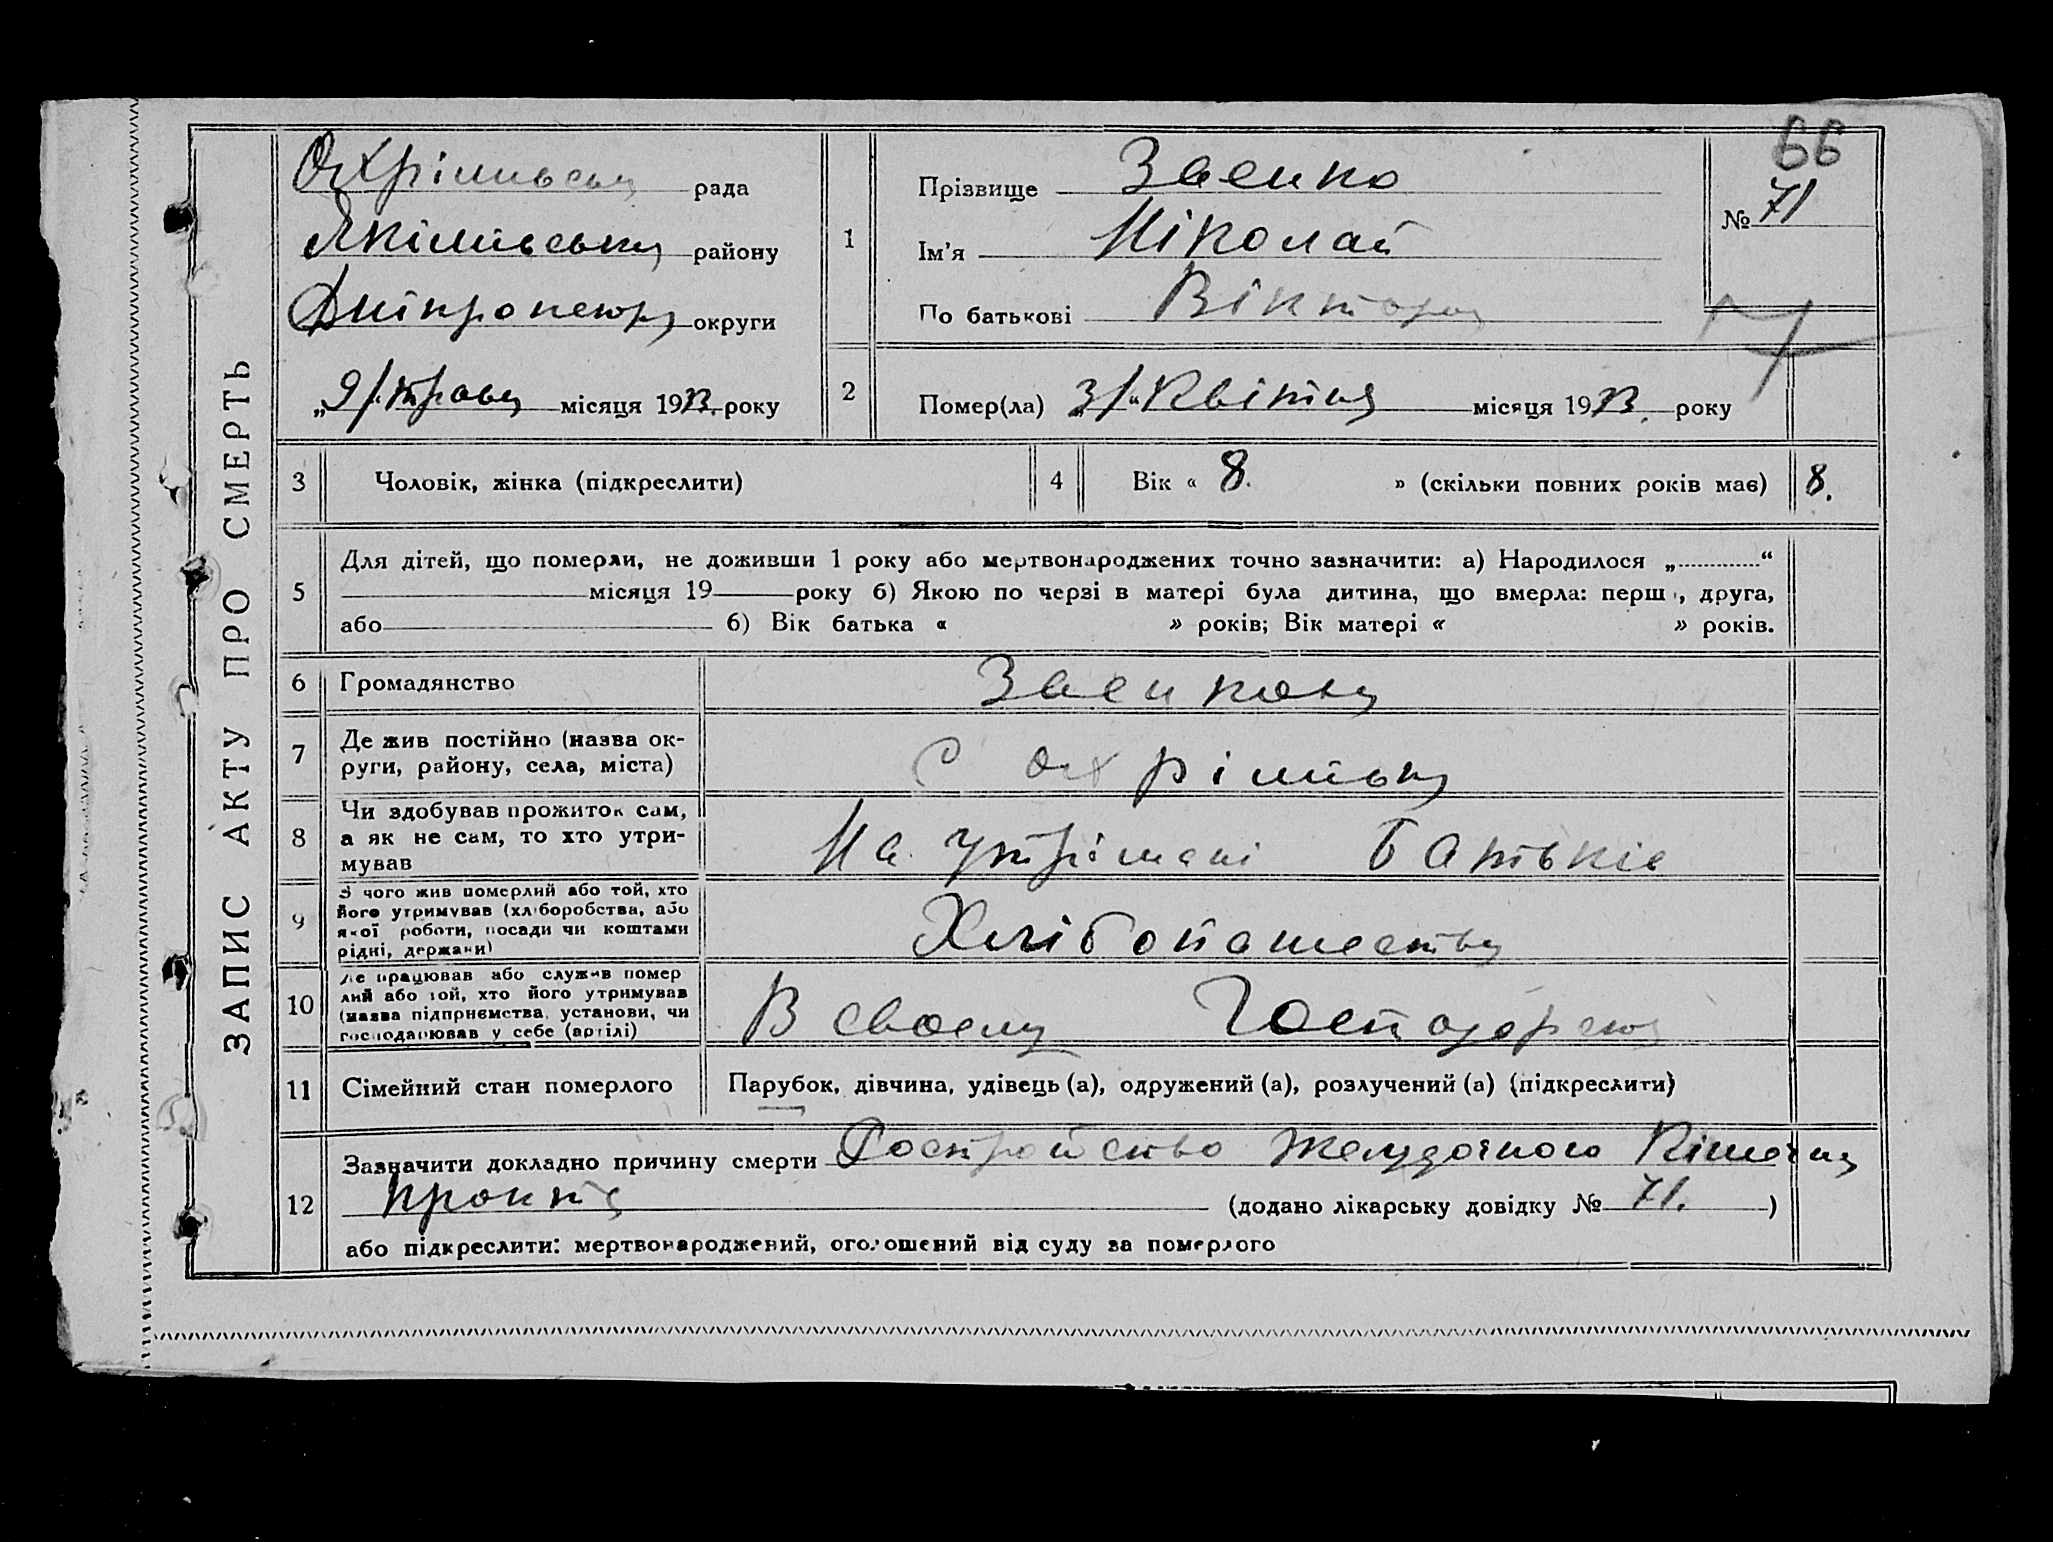 66
ЗАПИС АКТУ ПРО СМЕРТЬ
Охрімивську рада
Якімівську району
Дніпропетру округи
„9/. траву місяця 1933. року
1
Прізвище Заенко
Ім'я Ніколай
По батькові Віктору
№ 71
2
Помер(ла) 3/“ Квітня місяця 1933. року
3 Чоловік, жінка (підкреслити)
4 Вік « 8. » (скільки повних років має) 8.
5
Для дітей, що померли, не доживши 1 року або мертвонароджених точно зазначити: а) Народилося „ “
місяця 19 року б) Якою по черзі в матері була дитина, що вмерла: перша, друга,
або б) Вік батька « » років; Вік матері « » років.
6 Громадянство
7 Де жив постійно (назва ок-
руги, району, села, міста)
С Охрімивку
8 Чи здобував прожиток сам,
а як не сам, то хто утри-
мував
На утрімані Батьків
9 З чого жив померлий або той, хто
його утримував (хліборобства, або
якої роботи, посади чи коштами
рідні, держави)
Хлібопашеству
10 Де працював або служив помер
лий або той, хто його утримував
(назва підприємства, установи, чи
господарював у себе (артілі)
В своему Господарству
11 Сімейний стан померлого
Парубок, дівчина, удівець (а), одружений (а), розлучений (а) (підкреслити)
12
Зазначити докладно причину смерти Розстройство Желудочного Кішечну
(додано лікарську довідку № 71. )
або підкреслити: мертвонароджений, оголошений від суду за померлого